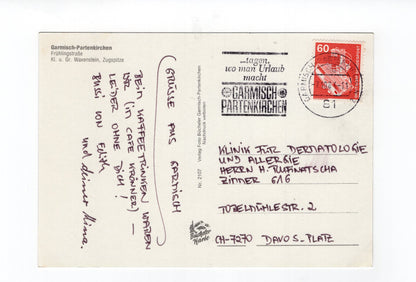 Garmisch-Partenkirchen
Frühlingstraße
Kl. u. Gr. Waxenstein, Zugspitze
GRÜSSE AUS GARMISCH
BEIM KAFFEETRINKEN WAREN
WIR (IM CAFE KRÖNNER) —
LEIDER OHNE DICH!
BUSSI VON EDITH
und deiner Mina.
Verlag Foto Büchsler Garmisch-Partenkirchen
Nachdruck verboten
Nr. 2107
...tagen,
wo man Urlaub
macht
GARMISCH
PARTENKIRCHEN
GARMISCH
81
60
KLINIK FÜR DERMATOLOGIE
UND ALLERGIE
HERRN H. RUFINATSCHA
ZIMMER 616
TOBELMÜHLESTR. 2
CH-7270 DAVOS-PLATZ
Karte